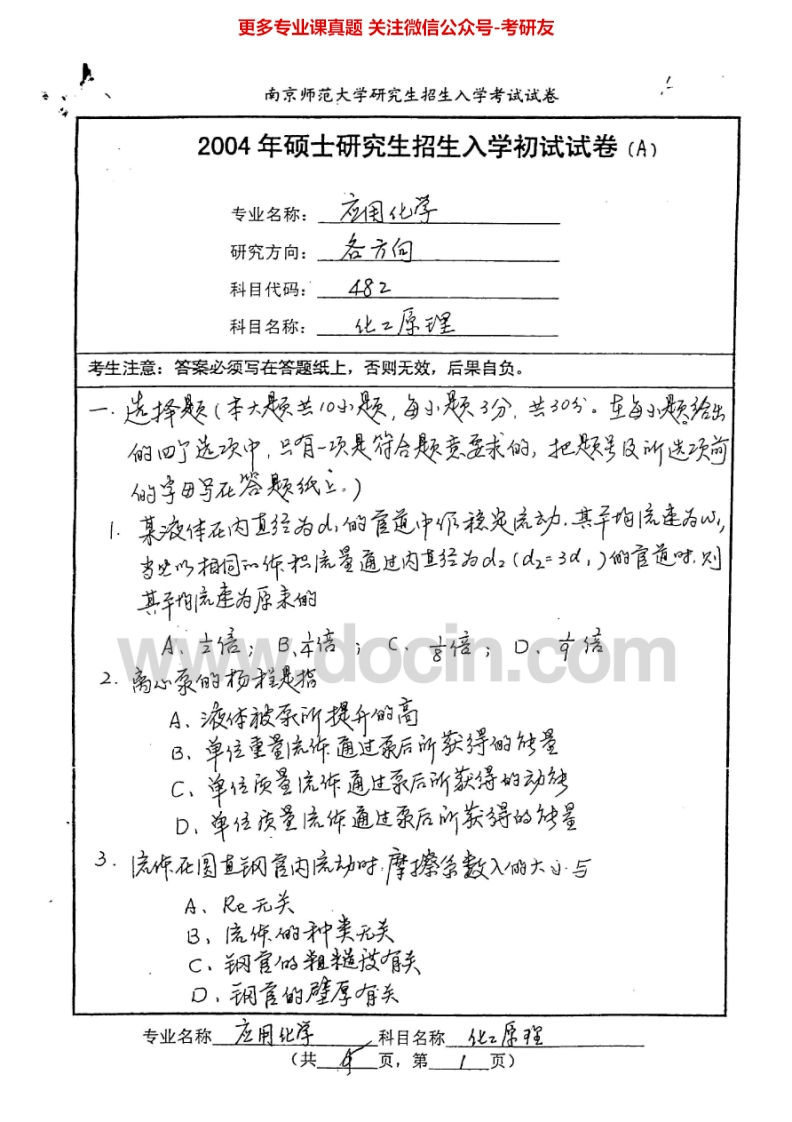 更多专业课真题 关注微信公众号-考研友
南京师范大学研究生招生入学考试试卷
2004 年硕士研究生招生入学初试试卷(A)
专业名称: 应用化学
研究方向: 各方向
科目代码: 482
科目名称: 化工原理
考生注意: 答案必须写在答题纸上,否则无效,后果自负。
一. 选择题(本大题共10小题,每小题3分,共30分。在每小题给出
的四个选项中,只有一项是符合题意要求的,把题号及所选项前
的字母写在答题纸上。)
1. 某液体在内直径为d₁的管道中作稳定流动,其平均流速为w₁,
当它以相同的体积流量通过内直径为d₂(d₂=3d₁)的管道时,则
其平均流速为原来的
A、1/2倍; B、1/4倍; C、1/8倍; D、1/9倍
www.docin.com
2. 离心泵的扬程是指
A、液体被泵所提升的高
B、单位重量流体通过泵后所获得的能量
C、单位质量流体通过泵后所获得的动能
D、单位质量流体通过泵后所获得的能量
3. 流体在圆直钢管内流动时,摩擦系数λ的大小与
A、Re无关
B、流体的种类无关
C、钢管的粗糙度有关
D、钢管的壁厚有关
专业名称 应用化学 科目名称 化工原理
(共 页,第 1 页)